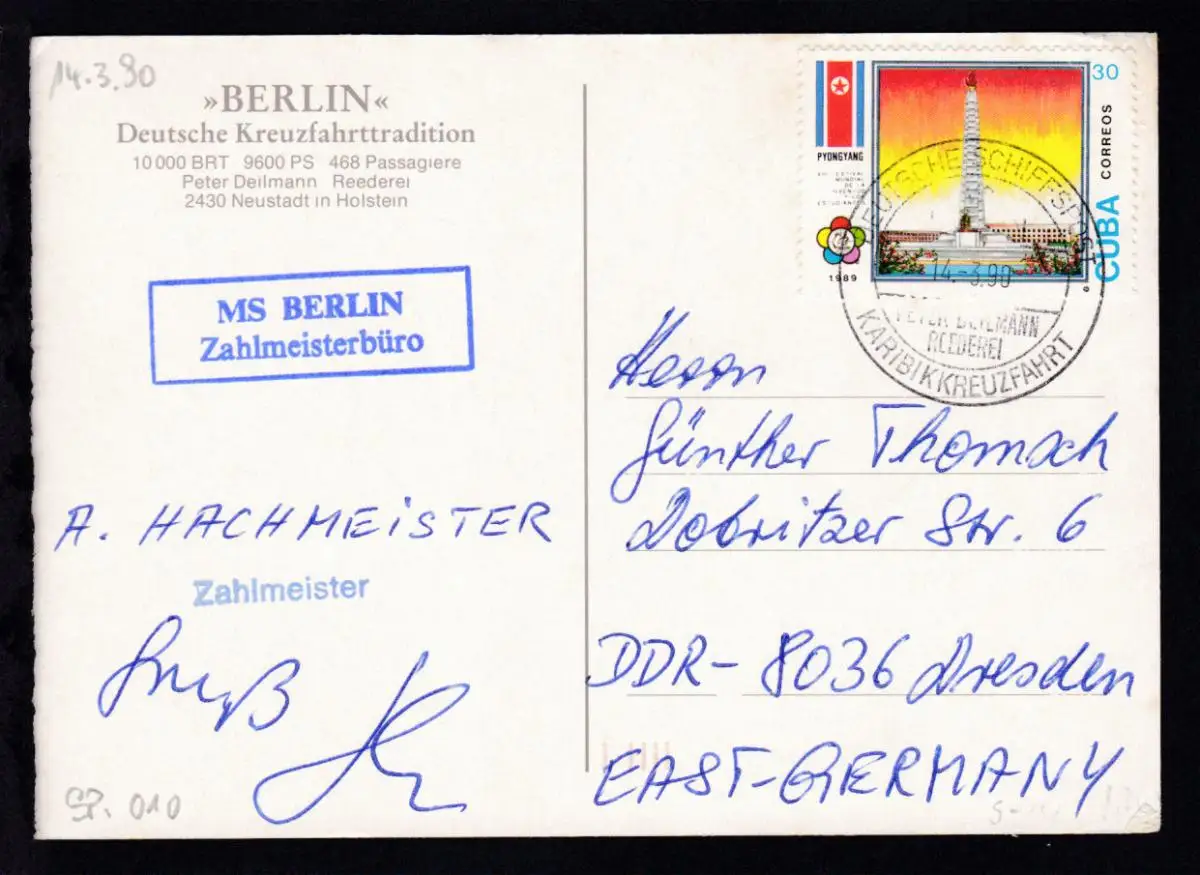 14.3.90
»BERLIN«
Deutsche Kreuzfahrttradition
10 000 BRT 9600 PS 468 Passagiere
Peter Deilmann Reederei
2430 Neustadt in Holstein
MS BERLIN
Zahlmeisterbüro
A. HACHMEiSTER
Zahlmeister
Gruß
SP. 010
PYONGYANG
FESTIVAL
MUNDIAL
DE LA
ESTUDIANTES
1989
30
CORREOS
CUBA
DEUTSCHE SCHIFFSPOST
14.-3.90
PETER DEILMANN
REEDEREI
KARIBIKKREUZFAHRT
Herrn
Günther Thomsch
Dobritzer Str. 6
DDR- 8036 Dresden
EAST-GERMANY